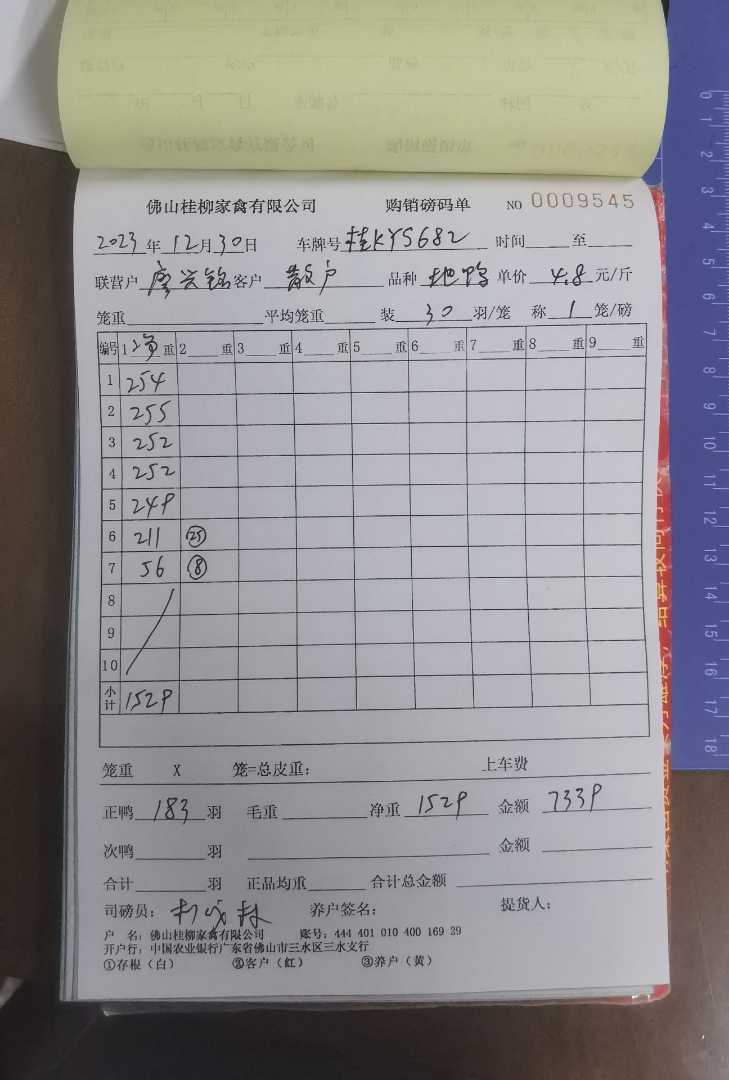 佛山桂柳家禽有限公司 购销磅码单 NO 0009545
2023年12月30日 车牌号 桂KY5682 时间 至
联营户 廖兴铭 客户 散户 品种 地鸭 单价 4.8 元/斤
笼重 平均笼重 装 30 羽/笼 称 1 笼/磅
编号 1 净 重 2 重 3 重 4 重 5 重 6 重 7 重 8 重 9 重
1 254
2 255
3 252
4 252
5 249
6 211 25
7 56 8
8
9
10
小计 1529
笼重 X 笼=总皮重: 上车费
正鸭 183 羽 毛重 净重 1529 金额 7339
次鸭 羽 金额
合计 羽 正品均重 合计总金额
司磅员: 养户签名: 提货人:
户 名: 佛山桂柳家禽有限公司 账号: 444 401 010 400 169 29
开户行: 中国农业银行广东省佛山市三水区三水支行
①存根(白) ②客户(红) ③养户(黄)
0 1 2 3 4 5 6 7 8 9 10 11 12 13 14 15 16 17 18